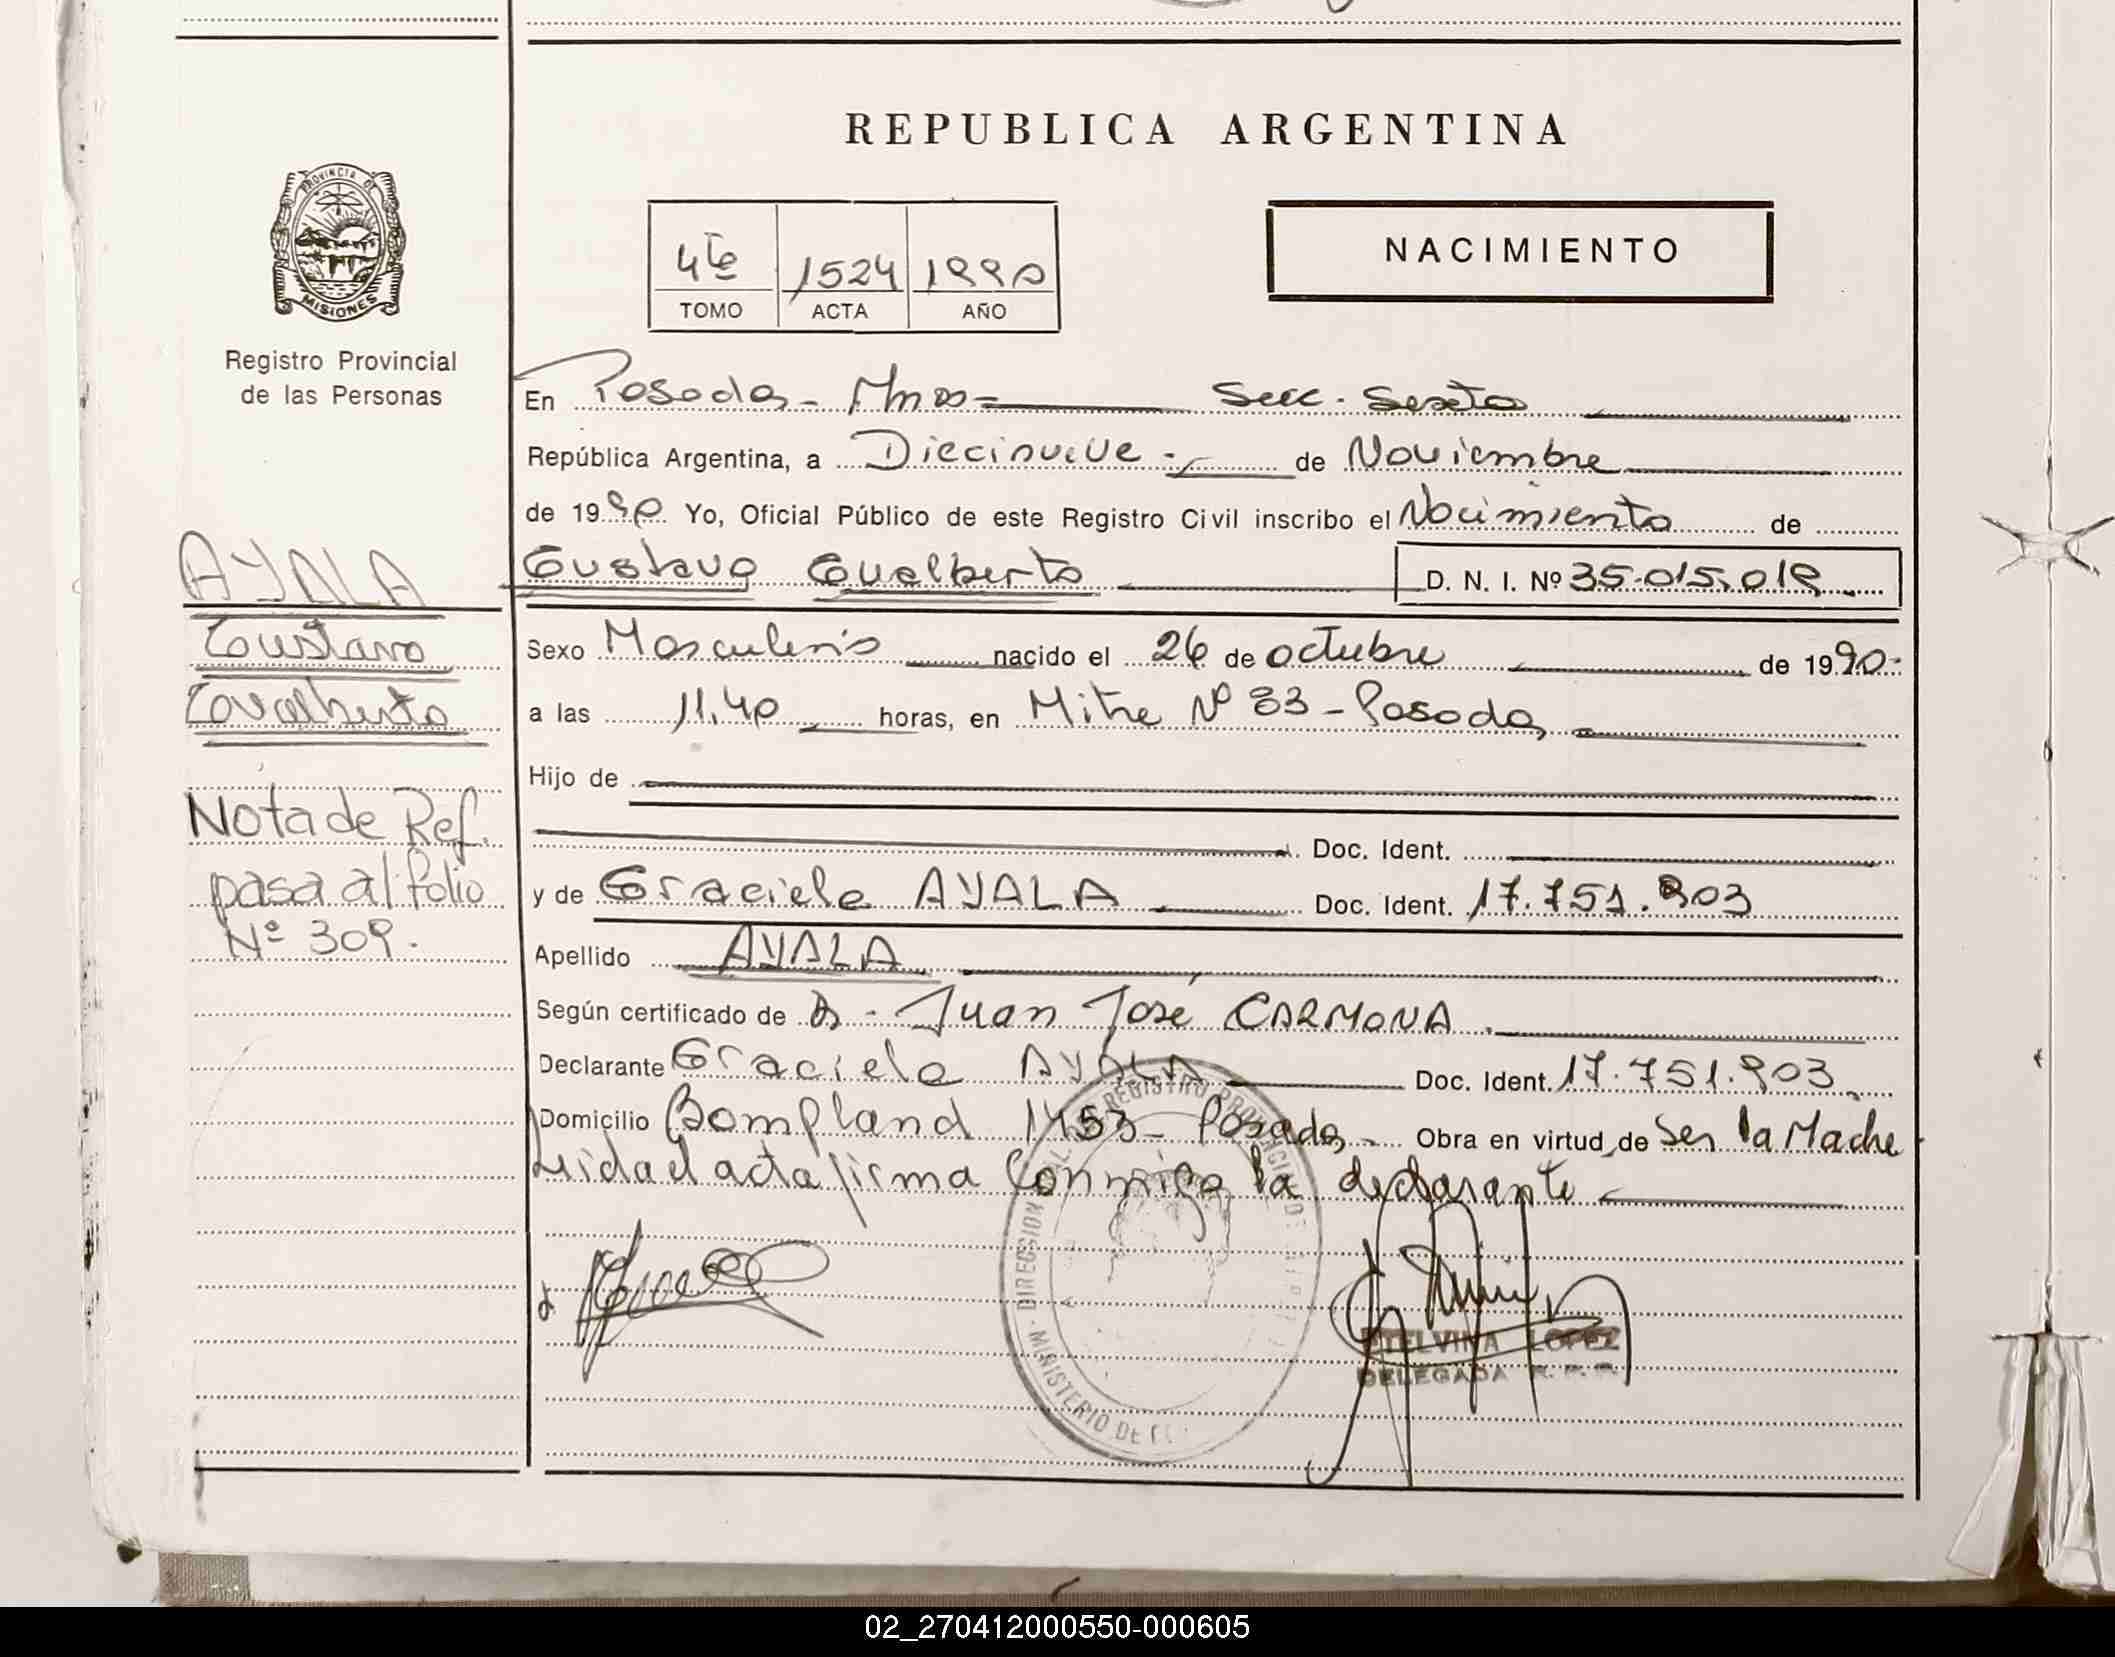 REPUBLICA ARGENTINA
PROVINCIA DE
MISIONES
Registro Provincial
de las Personas
4to 1524 1990
TOMO ACTA AÑO
NACIMIENTO
En Posadas - Mnes - Secc. Sexta
República Argentina, a Diecinueve.- de Noviembre
de 1990 Yo, Oficial Público de este Registro Civil inscribo el Nacimiento de
Gustavo Gualberto D. N. I. Nº 35.015.019
Sexo Masculino nacido el 26 de octubre de 1990.-
a las 11.40 horas, en Mitre Nº 83 - Posadas
Hijo de
Doc. Ident.
y de Graciela AYALA Doc. Ident. 17.751.903
Apellido AYALA
Según certificado de Dr. Juan José CARMONA.
Declarante Graciela AYALA Doc. Ident. 17.751.903
Domicilio Bompland 1453 - Posadas - Obra en virtud de Ser la Madre
Leida el acta firma conmigo la declarante
AYALA
Gustavo
Gualberto
Nota de Ref.
pasa al folio
Nº 309.
DIRECCION REGISTRO PROVINCIAL DE
MINISTERIO DE
ETELVINA LOPEZ
DELEGADA R. P. P.
02_270412000550-000605